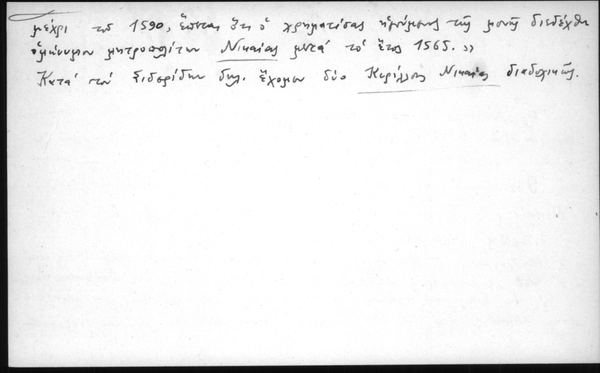 μέχρι τοῦ 1590, ἕπεται ὅτι ὁ χρηματίσας ἡγούμενος τῆς μονῆς διεδέχθη
ὁμώνυμον μητροπολίτην Νικαίας μετά τό ἔτος 1565.»
Κατά τόν Σιδερίδην δηλ. ἔχομεν δύο Κυρίλλους Νικαίας διαδοχικῶς.